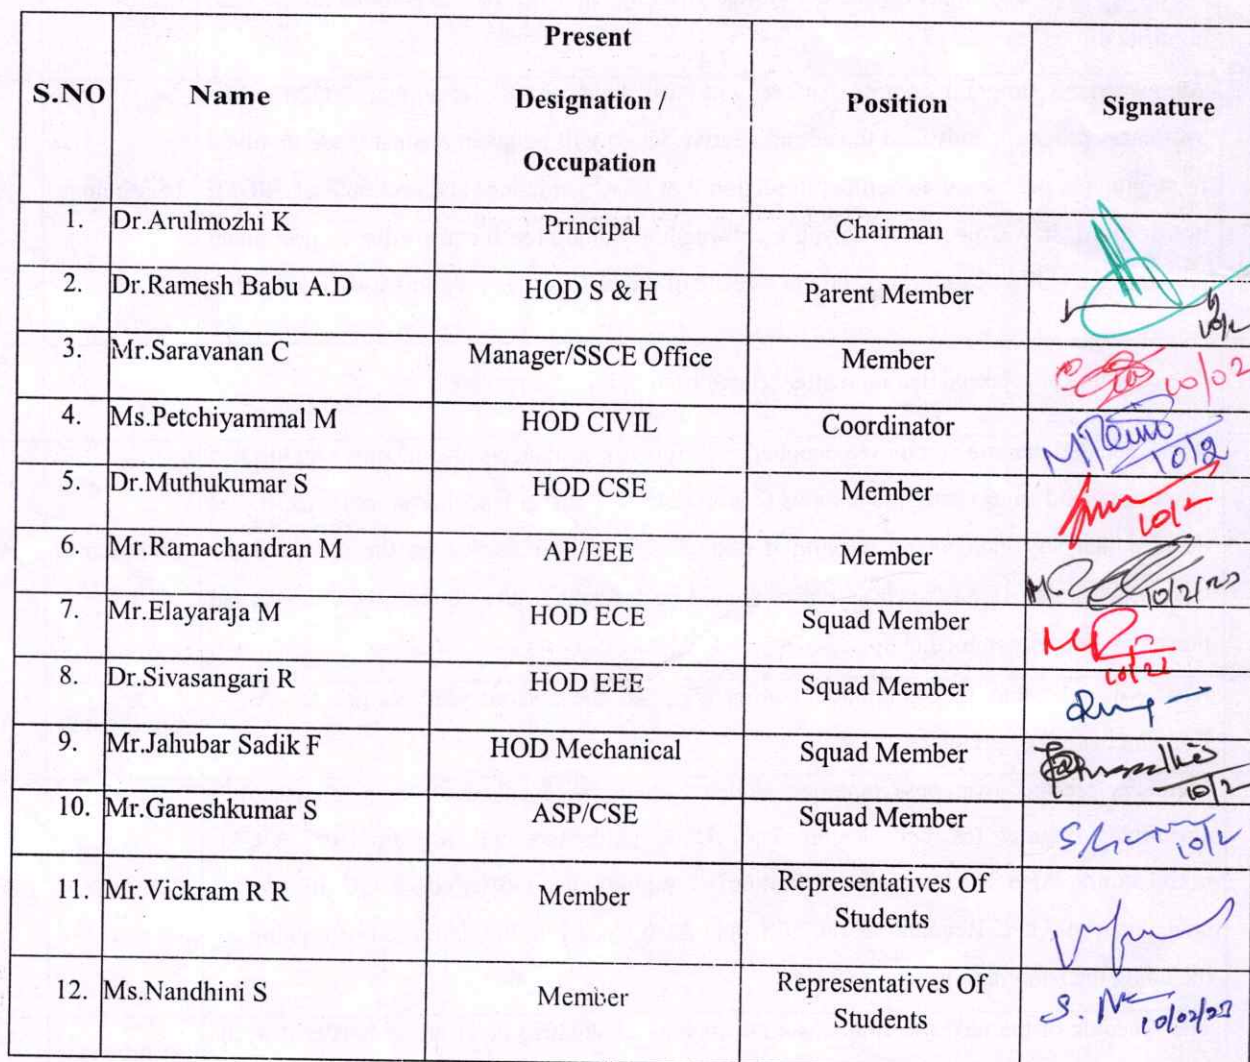 S.NO Name Present Designation / Occupation Position Signature
1. Dr.Arulmozhi K Principal Chairman
2. Dr.Ramesh Babu A.D HOD S & H Parent Member
3. Mr.Saravanan C Manager/SSCE Office Member 10/02
4. Ms.Petchiyammal M HOD CIVIL Coordinator 10/2
5. Dr.Muthukumar S HOD CSE Member 10/2
6. Mr.Ramachandran M AP/EEE Member 10/2/23
7. Mr.Elayaraja M HOD ECE Squad Member 10/2
8. Dr.Sivasangari R HOD EEE Squad Member
9. Mr.Jahubar Sadik F HOD Mechanical Squad Member 10/2
10. Mr.Ganeshkumar S ASP/CSE Squad Member 10/2
11. Mr.Vickram R R Member Representatives Of Students
12. Ms.Nandhini S Member Representatives Of Students 10/02/23